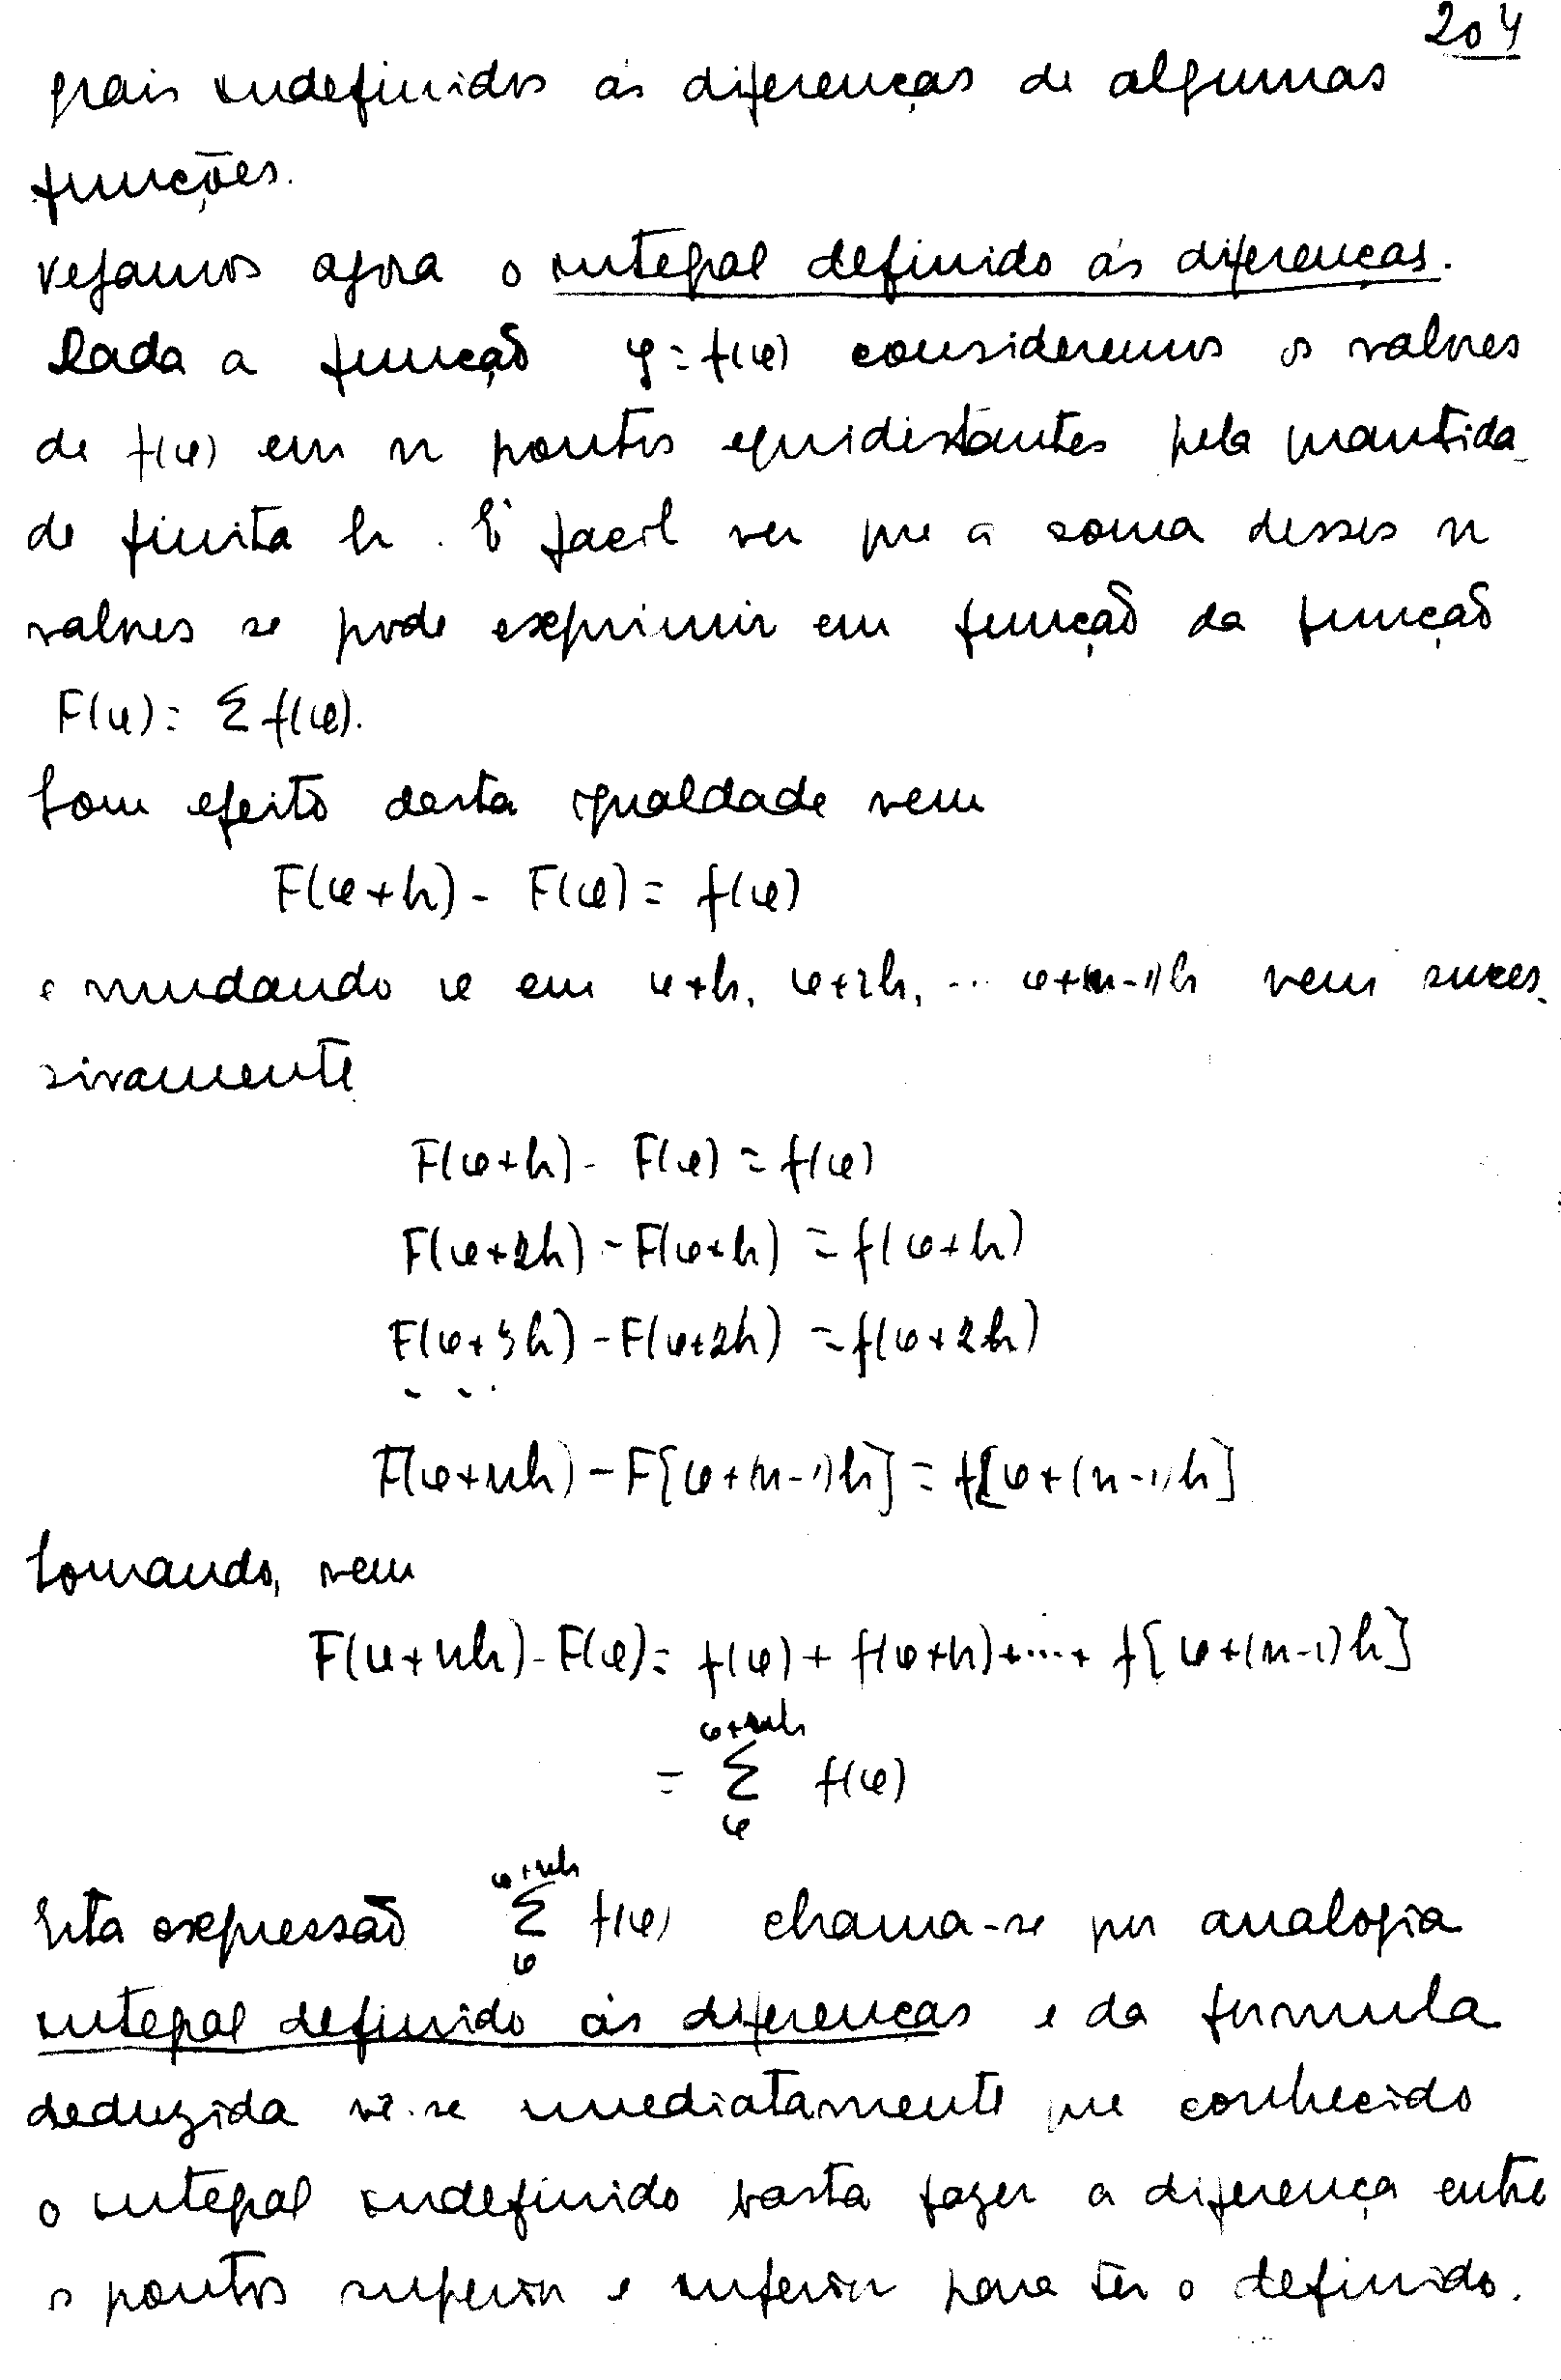 204
grais indefinidos ás diferenças de algumas
funções.
Vejamos agora o integral definido ás diferenças.
Dada a função y = f(x) consideremos os valores
de f(x) em n pontos equidistantes pela quantida-
de finita h. É facil ver que a soma desses n
valores se pode exprimir em função da função
F(x) = Σ f(x).
Com efeito desta igualdade vem
F(x+h) - F(x) = f(x)
e mudando x em x+h, x+2h, ... x+(n-1)h vem suces-
sivamente
F(x+h) - F(x) = f(x)
F(x+2h) - F(x+h) = f(x+h)
F(x+3h) - F(x+2h) = f(x+2h)
. . .
F(x+nh) - F[x+(n-1)h] = f[x+(n-1)h]
Somando, vem
F(x+nh) - F(x) = f(x) + f(x+h) + .... + f[x+(n-1)h]
x+nh
= Σ f(x)
x
x+nh
Esta expressão Σ f(x) chama-se por analogia
x
integral definido ás diferenças e da formula
deduzida vê-se imediatamente que conhecido
o integral indefinido basta fazer a diferença entre
os pontos superior e inferior para ter o definido.